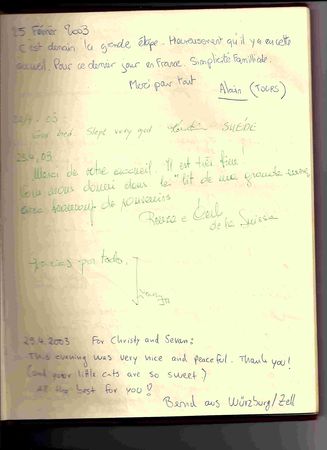 25 Février 2003
C'est demain la grande étape. Heureusement qu'il y a eu cette
accueil. Pour ce dernier jour en France. Simplicité Familliale.
Merci pour tout
Alain (TOURS)
03
Good bed. Slept very good SUÉDE
23.4.03
Merci de votre accueil. Il est très fine!
dans le "lit de ma grande
avec beaucoup de souvenirs
de la Suisse
Gracias por todo.
29.4.2003 For Christy and Sevan:
This evening was very nice and peaceful. Thank you!
(and your little cats are so sweet)
All the best for you!
Bernd aus Würzburg/Zell